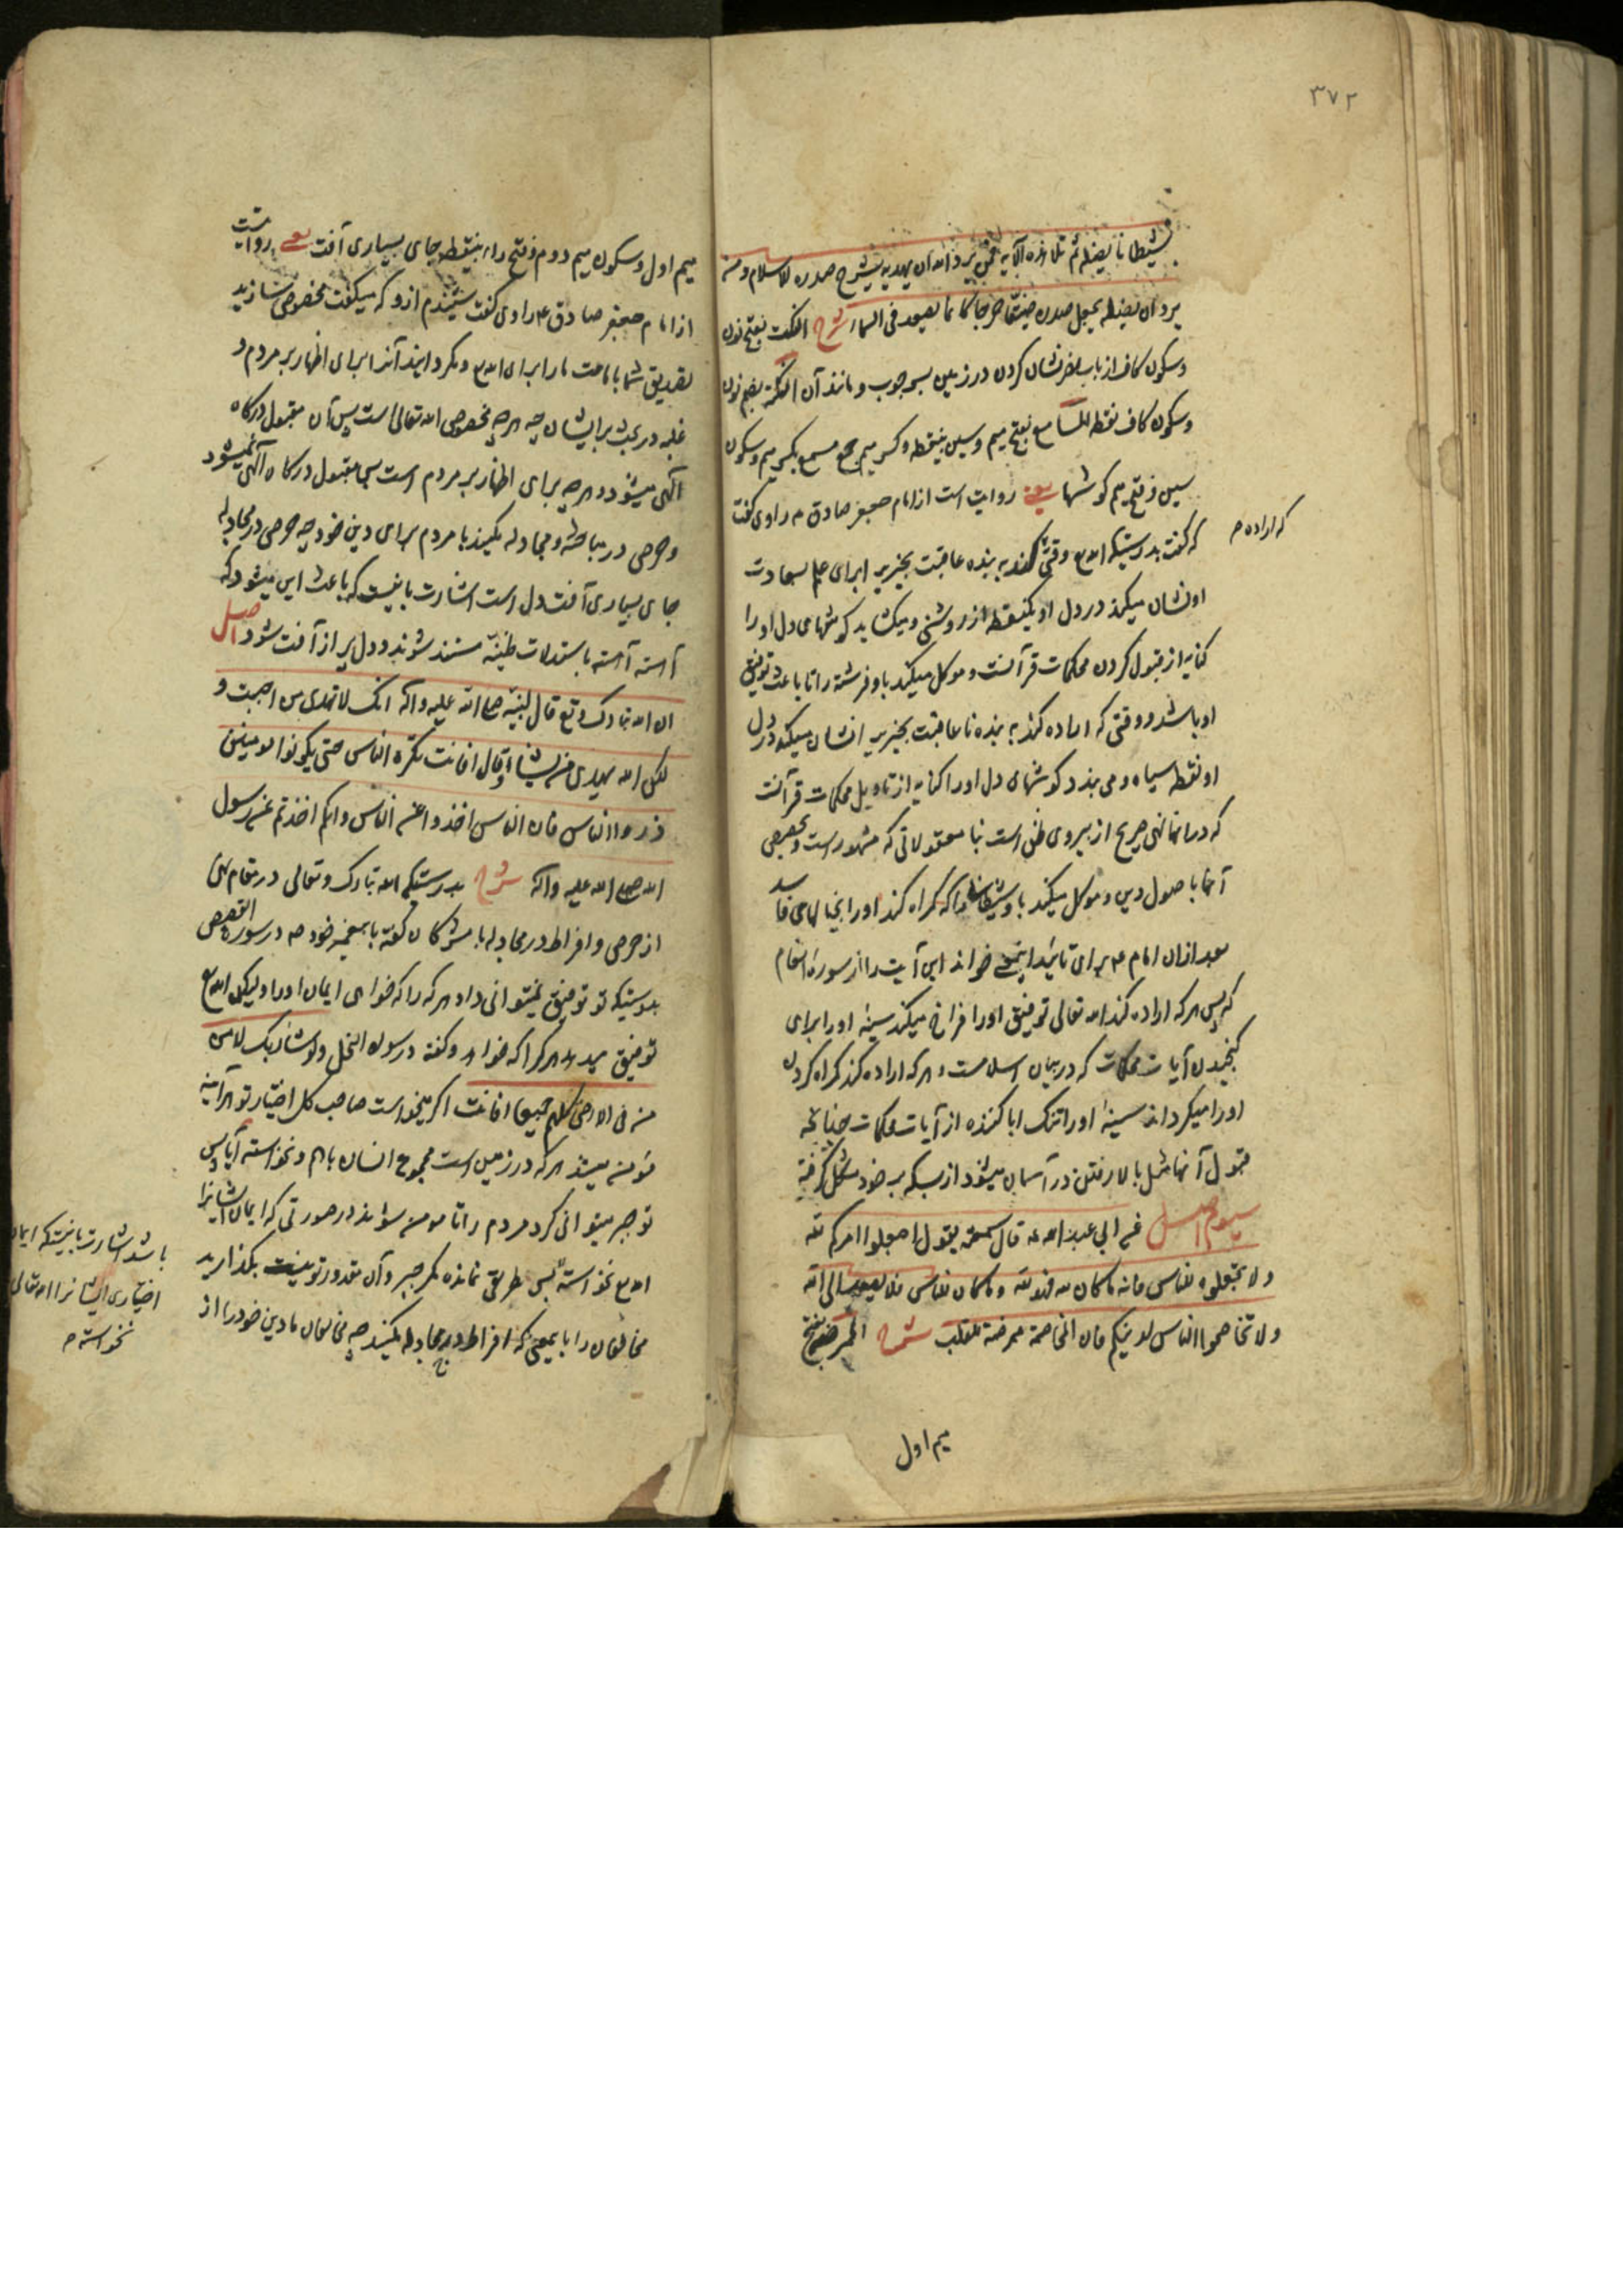 ۳۷۲
شیطانا یضله ثم تلا هذه الآیه فمن یرد الله ان یهدیه یشرح صدره للاسلام ومن
یرد ان یضله یجعل صدره ضیقا حرجا کانما یصعد فی السماء شرح النکت بفتح نون
وسکون کاف از باب نصر نشان کردن در زمین بسر چوب و مانند آن النکتة بضم نون
وسکون کاف نقطه المسامع بفتح میم وسین بینقطه وکسر میم جمع مسمع بکسر میم وسکون
سین وفتح میم کوشها یعنی روایت است از امام جعفر صادق ع راوی گفت
که گفت بدرستیکه الله ع وقتی کند به بنده عاقبت بخیر برای علم بسعادت
که اراده م
او نشان میکند در دل او یکنقطه از روشنی و میکشاید کوشهای دل او را
کنایه از قبول کردن محکمات قرآنست وموکل میکند باو فرشته را تا باعث توفیق
او باشد ووقتی که اراده کند به بنده ناعاقبت بخیر نشان میکند در دل
او نقطه سیاه ومی بندد کوشهای دل او را کنایه از تاویل محکمات قرآنست
که در آنها نهی صریح از پیروی ظن است بنا معقولاتی که مشهور است
آنها باصول دین وموکل میکند باو شیطانی را که کمراه کند او را بخیالهای فاسد
بعد از ان امام ع برای تایید این خواند این آیت را از سوره انعام
که پس هر که اراده کند الله تعالی توفیق او را فراخ میکند سینه او را برای
کنجیدن آیات محکمات که در بیان اسلامست وهر که اراده کند کمراه کردن
او را میکرداند سینه او را تنک ابا کننده از آیات محکمات چنانچه
قبول آنها مثل بالا رفتن در آسمان میشود از بسکه بر خود مشکل کرفته
سیوم اصل عن ابی عبد الله ع قال سمعته یقول اجعلوا امرکم لله
ولا تجعلوه للناس فانه ما کان لله فهو لله وما کان للناس فلا یصعد الی الله
ولا تخاصموا الناس لدینکم فان المخاصمة ممرضة للقلب شرح الممرضه بفتح
میم اول
میم اول وسکون میم دوم وفتح راء بینقطه جای بسیاری آفت یعنی روایت است
از امام جعفر صادق ع راوی گفت شنیدم ازو که میکفت مخصوص سازید
تصدیق شما بامامت ما را برای الله ع ومکردانید آنرا برای اظهار بر مردم و
غلبه در بحث بر ایشان چه هر چه مخصوص الله تعالی است پس آن مقبول درکاه
الهی میشود وهر چه برای اظهار بر مردم است پس مقبول درکاه الهی نمیشود
وحرص در مباحثه ومجادله مکنید با مردم برای دین خود چه حرص در مجادله
جای بسیاری آفت دل است اشارت باینست که باعث این میشود که
آهسته آهسته باستدلالات ظنیه مستند شوند ودل پر از آفت شود اصل
ان الله تبارک وتع قال لنبیه صلی الله علیه وآله انک لا تهدی من احببت و
لکن الله یهدی من یشاء وقال افانت تکره الناس حتی یکونوا مومنین
ذروا الناس فان الناس اخذوا عن الناس وانکم اخذتم عن رسول
الله صلی الله علیه وآله شرح بدرستیکه الله تبارک وتعالی در مقام نهی
از حرص وافراط در مجادله با مشرکان گفته با پیغمبر خود ص در سوره القصص
بدرستیکه تو توفیق نمیتوانی داد هر که را که خواهی ایمان او را ولیکن الله ع
توفیق میدهد هر کرا که خواهد وکفته در سوره النحل ولو شاء ربک لامن
من فی الارض کلهم جمیعا افانت اکر میخواست صاحب کل اختیار تو هر آینه
مومن میشد هر که در زمین است مجموع انسان باهم ونخواسته آیا پس
تو جبر میتوانی کرد مردم را تا مومن شوند در صورتی که ایمان ایشانرا
الله ع نخواسته پس طریقی نمانده مکر جبر وآن مقدور تو نیست بکذارید
مخالفان را بایمعنی که افراط در مجادله مکنید چه مخالفان ما دین خود را از
باشد اشارت باینستکه ایمان
اختیاری ایشانرا الله تعالی
نخواسته م